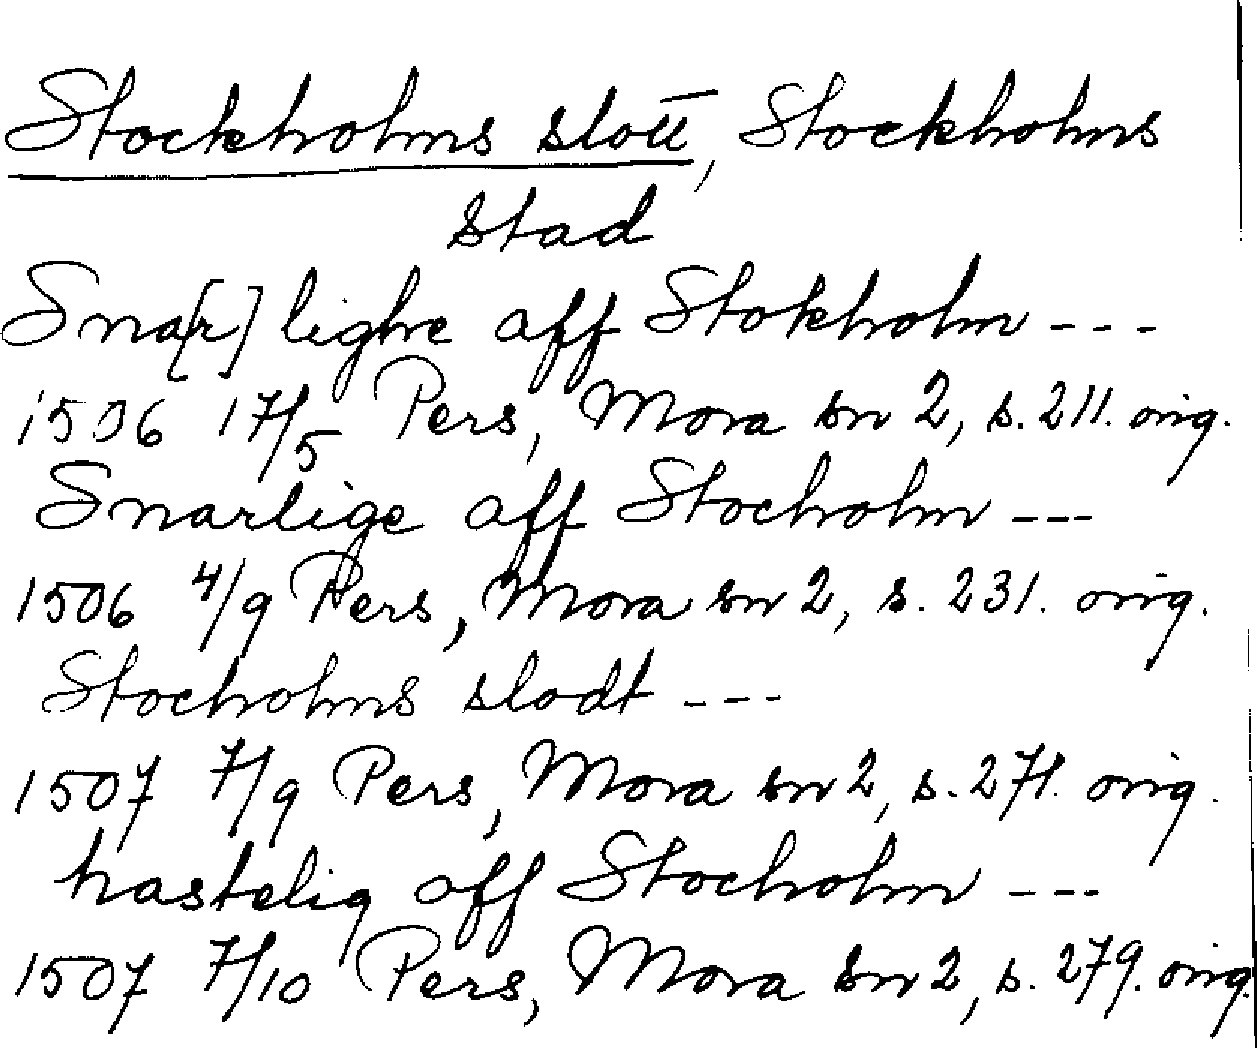 Stockholms slott, Stockholms
stad
Sna[r]lighe aff Stokholm ---
1506 17/5 Pers, Mora sn 2, s. 211. orig.
Snarlige aff Stocholm ---
1506 4/9 Pers, Mora sn 2, s. 231. orig.
Stocholms slodt ---
1507 7/9 Pers, Mora sn 2, s. 271. orig.
hastelig aff Stocholm ---
1507 7/10 Pers, Mora sn 2, s. 279. orig.